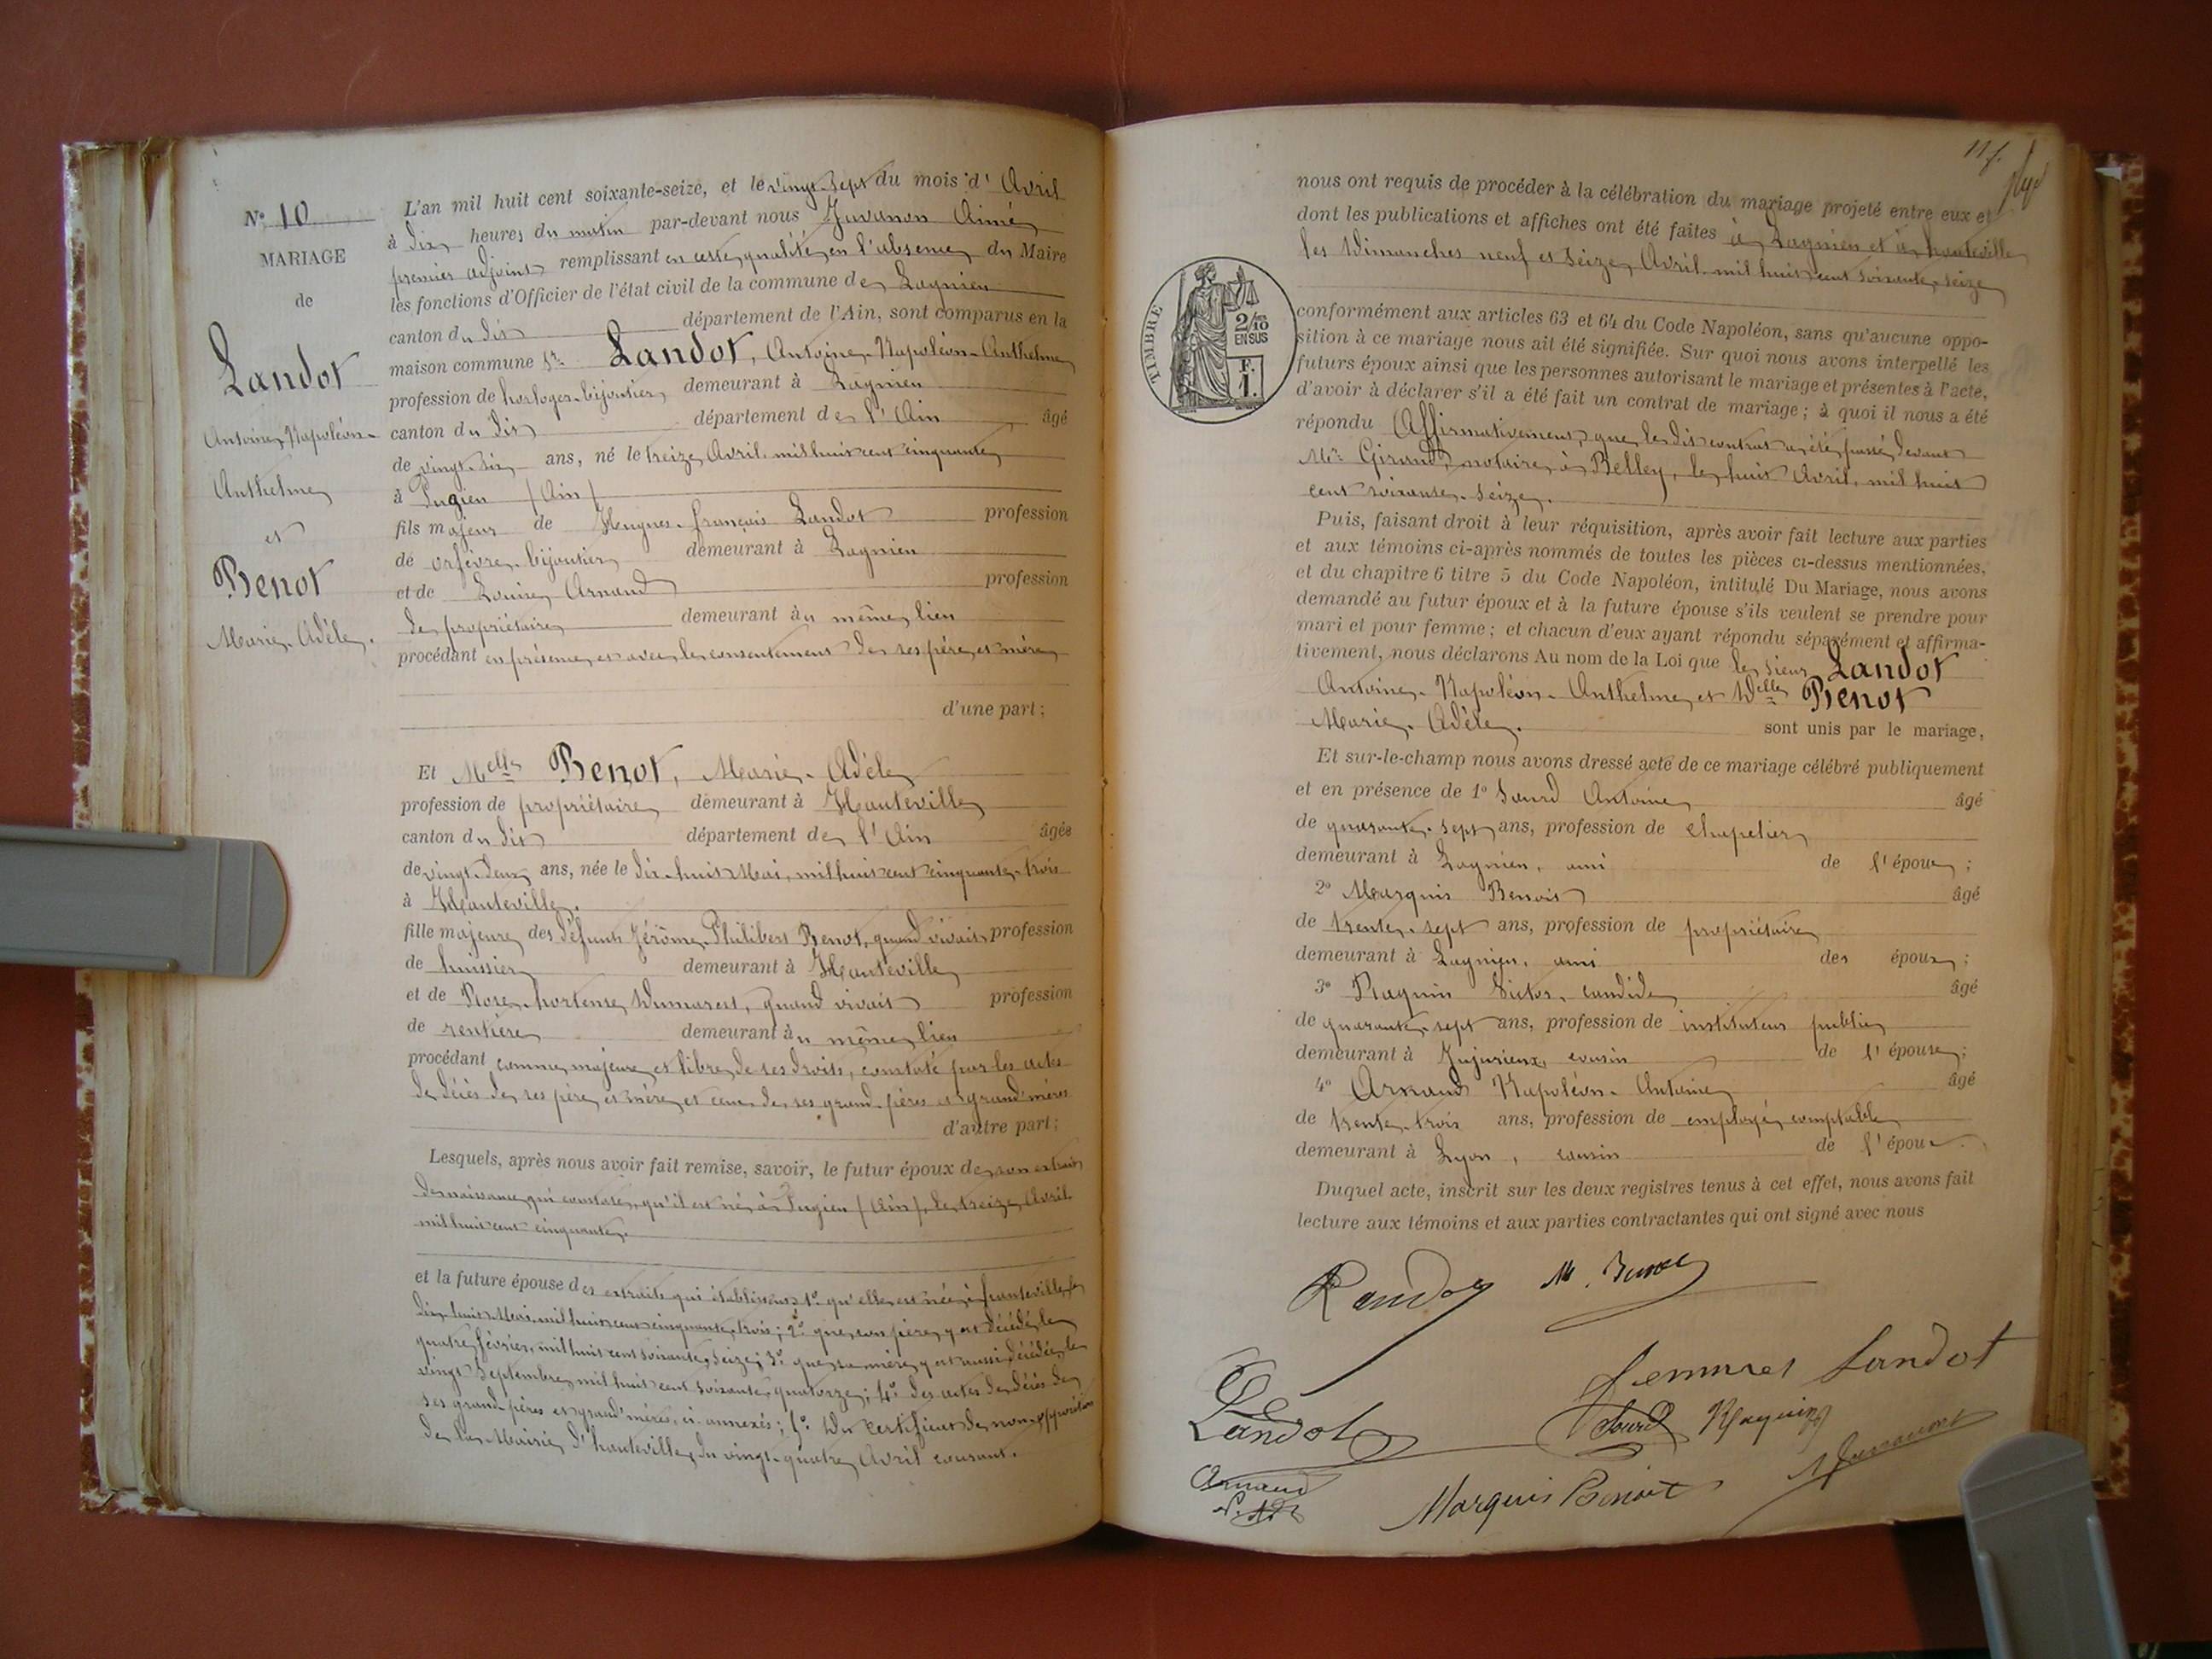 N° 10
MARIAGE
de
Landot
Antoine-Napoléon-
Anthelme
et
Benot
Marie-Adèle.
L'an mil huit cent soixante-seize, et le vingt-sept du mois d'Avril
à dix heures du matin par-devant nous Juvanon Aimé
premier adjoint remplissant en cette qualité en l'absence du Maire
les fonctions d'Officier de l'état civil de la commune de Lagnieu
canton du dit département de l'Ain, sont comparus en la
maison commune Sr. Landot, Antoine-Napoléon-Anthelme
profession de horloger-bijoutier demeurant à Lagnieu
canton du dit département de l'Ain âgé
de vingt-six ans, né le treize Avril mil huit cent cinquante
à Pugieu (Ain)
fils majeur de Hugues-françois Landot profession
de orfèvre-bijoutier demeurant à Lagnieu
et de Louise Arnaud profession
de propriétaire demeurant au même lieu
procédant en présence et avec le consentement de ses père et mère
d'une part;
Et Melle Benot, Marie-Adèle
profession de propriétaire demeurant à Hauteville
canton du dit département de l'Ain âgée
de vingt-deux ans, née le dix-huit Mai, mil huit cent cinquante-trois
à Hauteville.
fille majeure des défunts Jérôme-Philibert Benot, quand vivait, profession
de huissier demeurant à Hauteville
et de Rose-hortense Dumarest, quand vivait profession
de rentière demeurant au même lieu
procédant comme majeure et libre de ses droits, constaté par les actes
de décès de ses père et mère et ceux de ses grand-pères et grand'mères
d'autre part;
Lesquels, après nous avoir fait remise, savoir, le futur époux de son extrait
de naissance qui constate, qu'il est né à Pugieu (Ain), le treize Avril
mil huit cent cinquante.
et la future épouse des extraits qui établissent 1° qu'elle est née à hauteville le
dix-huit Mai mil huit cent cinquante-trois; 2° que son père y est décédé le
quatre février, mil huit cent soixante-seize; 3° que sa mère y est aussi décédée le
vingt Septembre mil huit cent soixante-quatorze; 4° des actes de décès de
ses grand-pères et grand'mères, ci-annexés; 5° Du certificat de non-opposition
de la Mairie d'hauteville, du vingt-quatre Avril courant.
nous ont requis de procéder à la célébration du mariage projeté entre eux et
dont les publications et affiches ont été faites à Lagnieu et à hauteville
les Dimanches neuf et seize Avril mil huit cent soixante-seize
TIMBRE
2/10
EN SUS
F.
1.
conformément aux articles 63 et 64 du Code Napoléon, sans qu'aucune oppo-
sition à ce mariage nous ait été signifiée. Sur quoi nous avons interpellé les
futurs époux ainsi que les personnes autorisant le mariage et présentes à l'acte,
d'avoir à déclarer s'il a été fait un contrat de mariage; à quoi il nous a été
répondu Affirmativement, que le dit contrat a été passé devant
Me Girand, notaire à Belley, le huit Avril, mil huit
cent soixante-seize.
Puis, faisant droit à leur réquisition, après avoir fait lecture aux parties
et aux témoins ci-après nommés de toutes les pièces ci-dessus mentionnées,
et du chapitre 6 titre 5 du Code Napoléon, intitulé Du Mariage, nous avons
demandé au futur époux et à la future épouse s'ils veulent se prendre pour
mari et pour femme; et chacun d'eux ayant répondu séparément et affirma-
tivement, nous déclarons Au nom de la Loi que le sieur Landot
Antoine-Napoléon-Anthelme et Delle Benot
Marie-Adèle. sont unis par le mariage,
Et sur-le-champ nous avons dressé acte de ce mariage célébré publiquement
et en présence de 1° Sourd Antoine âgé
de quarante-sept ans, profession de chapelier
demeurant à Lagnieu, ami de l'époux;
2° Marquis Benoit âgé
de trente-sept ans, profession de propriétaire
demeurant à Lagnieu, ami des époux;
3° Raquin Victor, candide âgé
de quarante-sept ans, profession de instituteur public
demeurant à Jujurieux, cousin de l'épouse;
4° Arnaud Napoléon-Antoine âgé
de trente-trois ans, profession de employé comptable
demeurant à Lyon, cousin de l'époux.
Duquel acte, inscrit sur les deux registres tenus à cet effet, nous avons fait
lecture aux témoins et aux parties contractantes qui ont signé avec nous
Landot M. Benot
femme Landot
Landot Sourd Raquin
Arnaud
Marquis Benoit